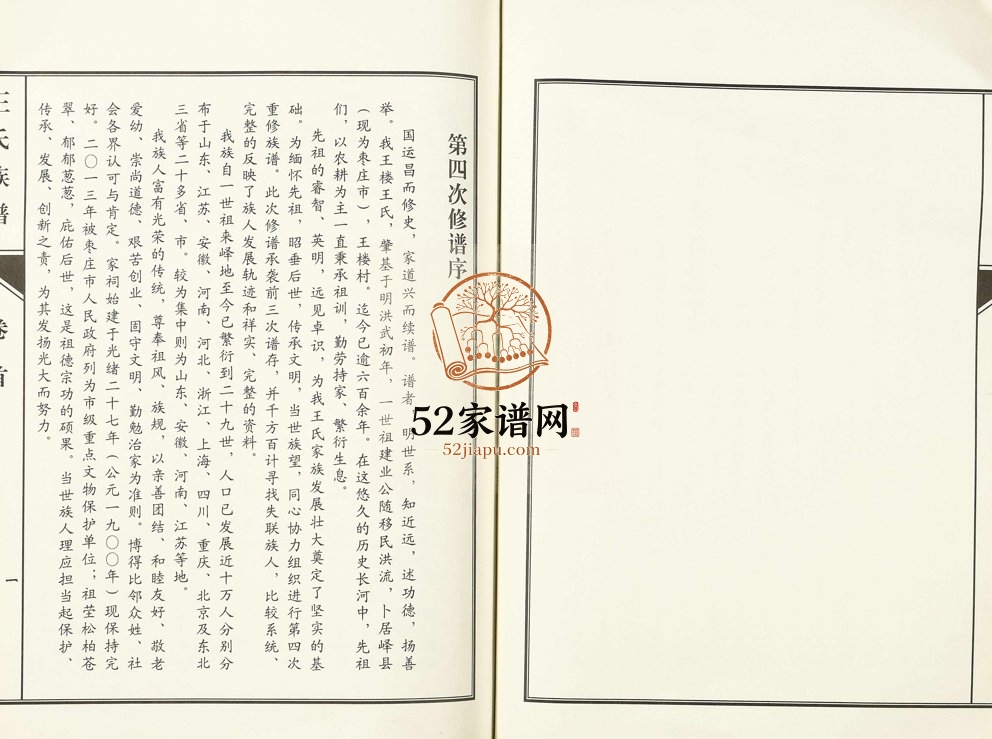 第四次修谱序
国运昌而修史，家道兴而续谱。谱者，明世系，知近远，述功德，扬善
举。我王楼王氏，肇基于明洪武初年，一世祖建业公随移民洪流，卜居峄县
（现为枣庄市），王楼村。迄今已逾六百余年。在这悠久的历史长河中，先祖
们，以农耕为主一直秉承祖训，勤劳持家、繁衍生息。
先祖的睿智、英明，远见卓识，为我王氏家族发展壮大奠定了坚实的基
础。为缅怀先祖，昭垂后世，传承文明，当世族望，同心协力组织进行第四次
重修族谱。此次修谱承袭前三次谱存，并千方百计寻找失联族人，比较系统、
完整的反映了族人发展轨迹和祥实、完整的资料。
我族自一世祖来峄地至今已繁衍到二十九世，人口已发展近十万人分别分
布于山东、江苏、安徽、河南、河北、浙江、上海、四川、重庆、北京及东北
三省等二十多省、市。较为集中则为山东、安徽、河南、江苏等地。
我族人富有光荣的传统，尊奉祖风、族规，以亲善团结、和睦友好、敬老
爱幼、崇尚道德、艰苦创业、固守文明、勤勉治家为准则。博得比邻众姓、社
会各界认可与肯定。家祠始建于光绪二十七年（公元一九〇〇年）现保持完
好。二〇一三年被枣庄市人民政府列为市级重点文物保护单位；祖茔松柏苍
翠、郁郁葱葱，庇佑后世，这是祖德宗功的硕果。当世族人理应担当起保护、
传承、发展、创新之责，为其发扬光大而努力。
王氏族谱
卷首
一
52家谱网
52jiapu.com